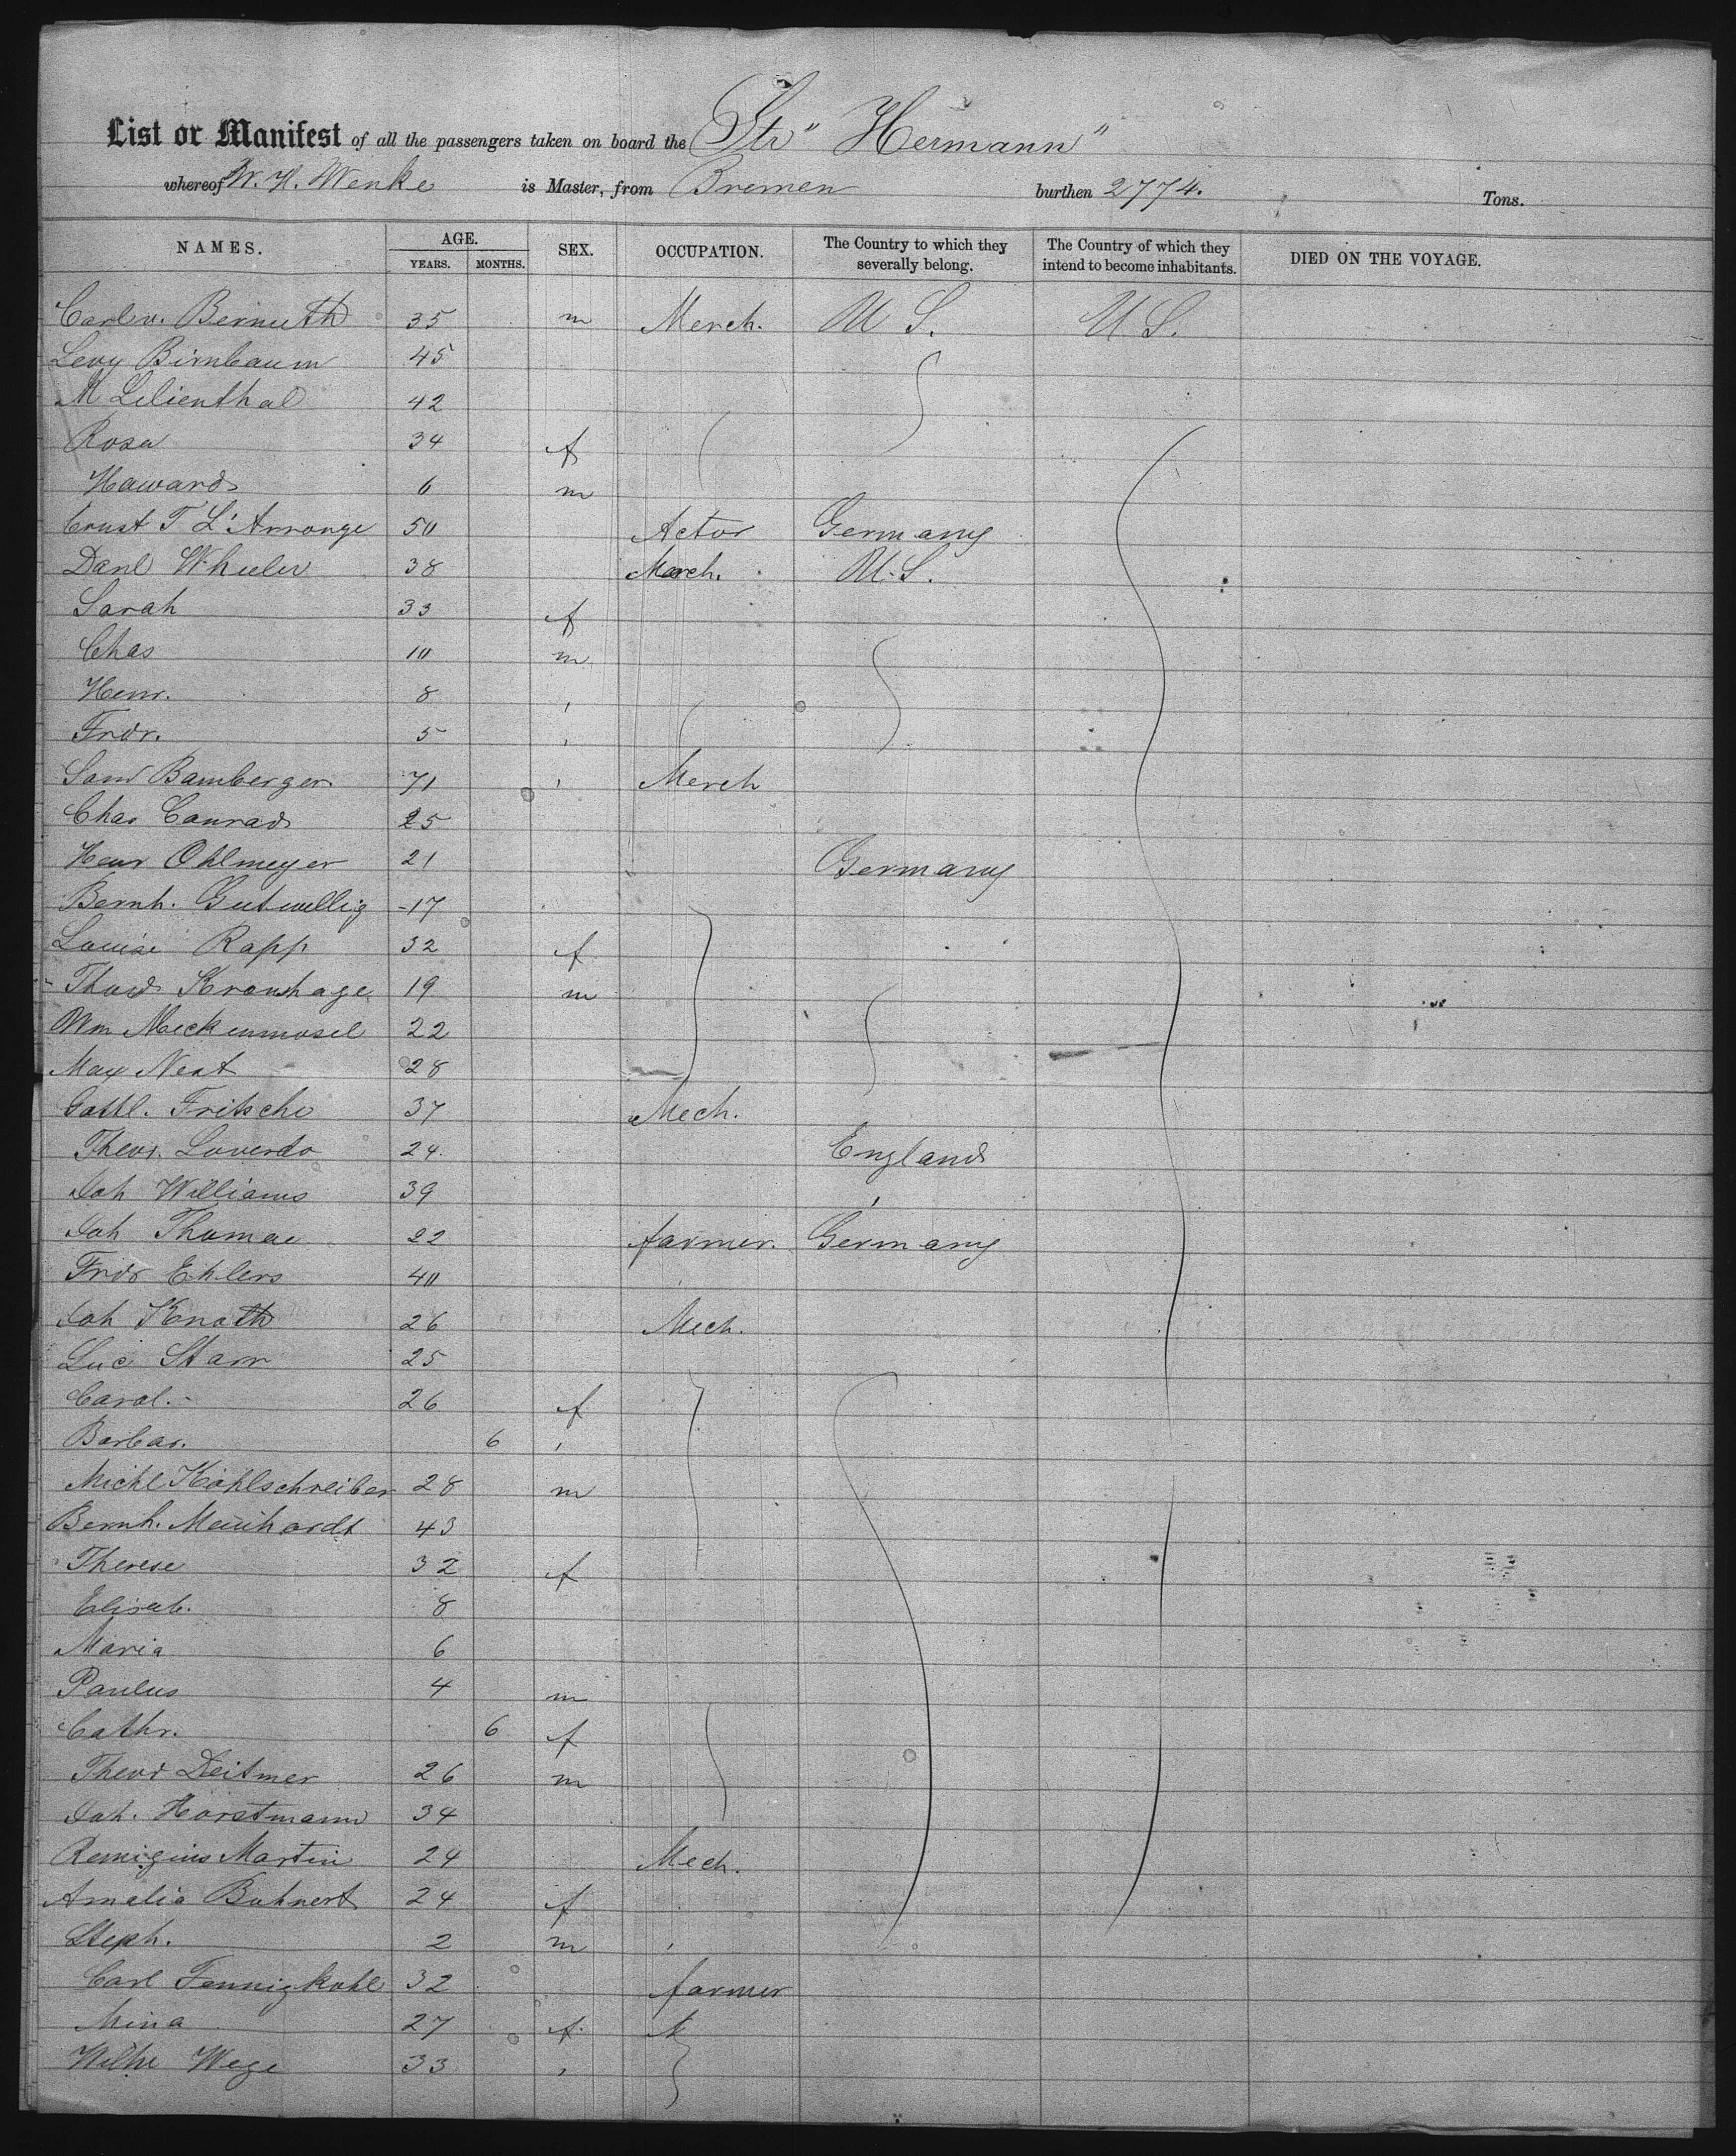 List or Manifest of all the passengers taken on board the Str "Hermann"
whereof W. H. Wenke is Master, from Bremen burthen 2774. Tons.
NAMES. AGE. YEARS. MONTHS. SEX. OCCUPATION. The Country to which they severally belong. The Country of which they intend to become inhabitants. DIED ON THE VOYAGE.
Carl v. Bernuth 35 m Merch. U S. U S.
Levy Birnbaum 45
M Lilienthal 42
Rosa 34 f
Haward 6 m
Ernst T L'Arronge 50 Actor Germany
Danl Wheeler 38 Merch. U.S.
Sarah 33 f
Chas 10 m
Henr. 8 "
Fridr. 5 "
Saml Bamberger 71 " Merch
Chas Conrad 25
Henr Ohlmeyer 21 Germany
Bernh. Gutwillig 17
Louise Rapp 32 f
Theod Kronshage 19 m
Wm Meckenmosel 22
Max Nest 28
Gottl. Fritsche 37 Mech.
Theod. Loverdo 24 England
Joh Williams 39 "
Joh Thomae 22 farmer. Germany
Fridr Ehlers 40
Joh Knoth 26 Mech.
Luc Starr 25
Carol. 26 f
Barbar. 6 "
Michl Kohlschreiber 28 m
Bernh. Meinhardt 43
Therese 32 f
Elisab. 8
Maria 6
Paulus 4 m
Cathr. 6 f
Theod Deitmer 26 m
Joh. Horstmann 34
Remigius Martin 24 Mech.
Amalia Bohnert 24 f
Steph. 2 m "
Carl Fennigkohl 32 farmer
Mina 27 f
Wilhe Wege 33 "